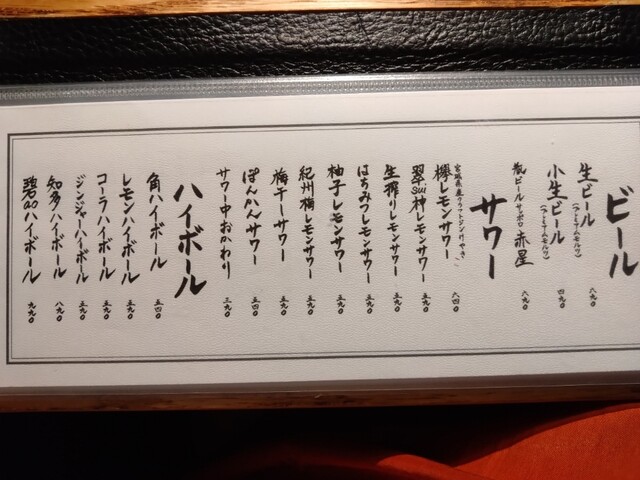 ビール
生ビール
(プレミアムモルツ)
六九〇
小生ビール
(プレミアムモルツ)
四九〇
瓶ビール サッポロ 赤星
六九〇
サワー
宮城県産クラフトジンけやき
欅レモンサワー
六四〇
翠sui神レモンサワー
五九〇
生搾りレモンサワー
五九〇
はちみつレモンサワー
五九〇
柚子レモンサワー
五九〇
紀州梅レモンサワー
五九〇
梅干サワー
五九〇
ぽんかんサワー
五四〇
サワー中おかわり
三九〇
ハイボール
角ハイボール
五四〇
レモンハイボール
五九〇
コーラハイボール
五九〇
ジンジャーハイボール
五九〇
知多ハイボール
八九〇
碧aoハイボール
九九〇